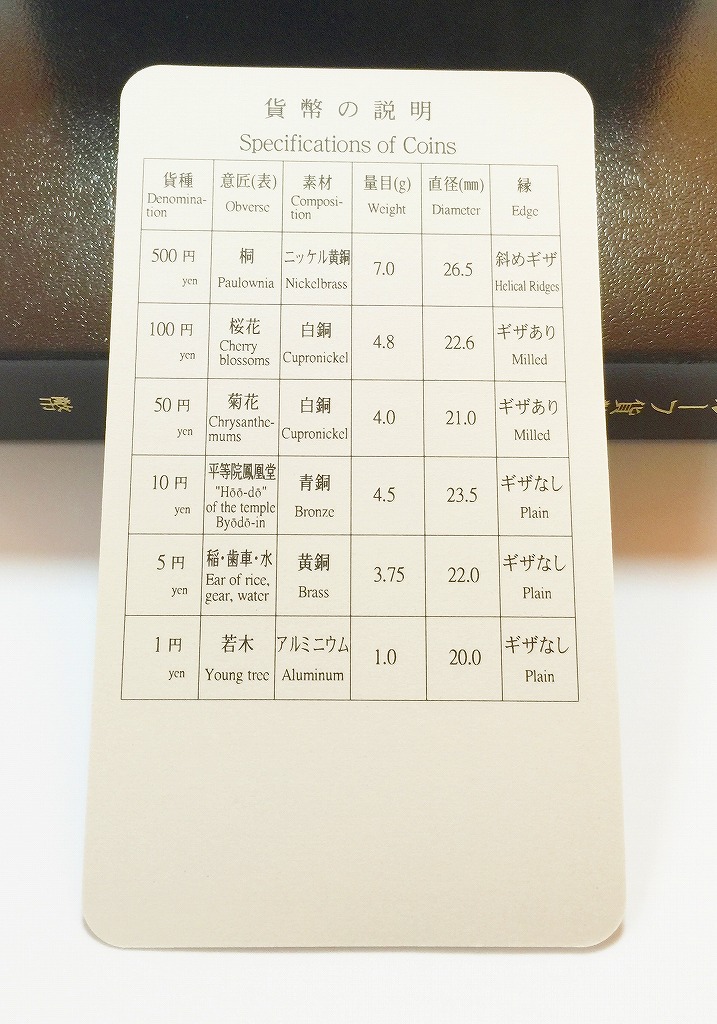 貨幣の説明
Specifications of Coins
貨種 意匠(表) 素材 量目(g) 直径(mm) 縁
Denomina-
tion Obverse Composi-
tion Weight Diameter Edge
500 円 桐 ニッケル黄銅 7.0 26.5 斜めギザ
yen Paulownia Nickelbrass Helical Ridges
100 円 桜花 白銅 4.8 22.6 ギザあり
yen Cherry
blossoms Cupronickel Milled
50 円 菊花 白銅 4.0 21.0 ギザあり
yen Chrysanthe-
mums Cupronickel Milled
10 円 平等院鳳凰堂 青銅 4.5 23.5 ギザなし
yen "Hōō-dō"
of the temple
Byōdō-in Bronze Plain
5 円 稲・歯車・水 黄銅 3.75 22.0 ギザなし
yen Ear of rice,
gear, water Brass Plain
1 円 若木 アルミニウム 1.0 20.0 ギザなし
yen Young tree Aluminum Plain
幣
ルーフ貨